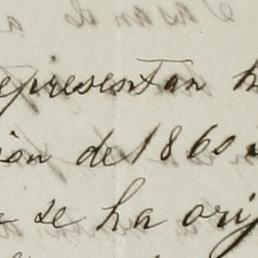 epresentan h
ion de 1860
e se ha orig